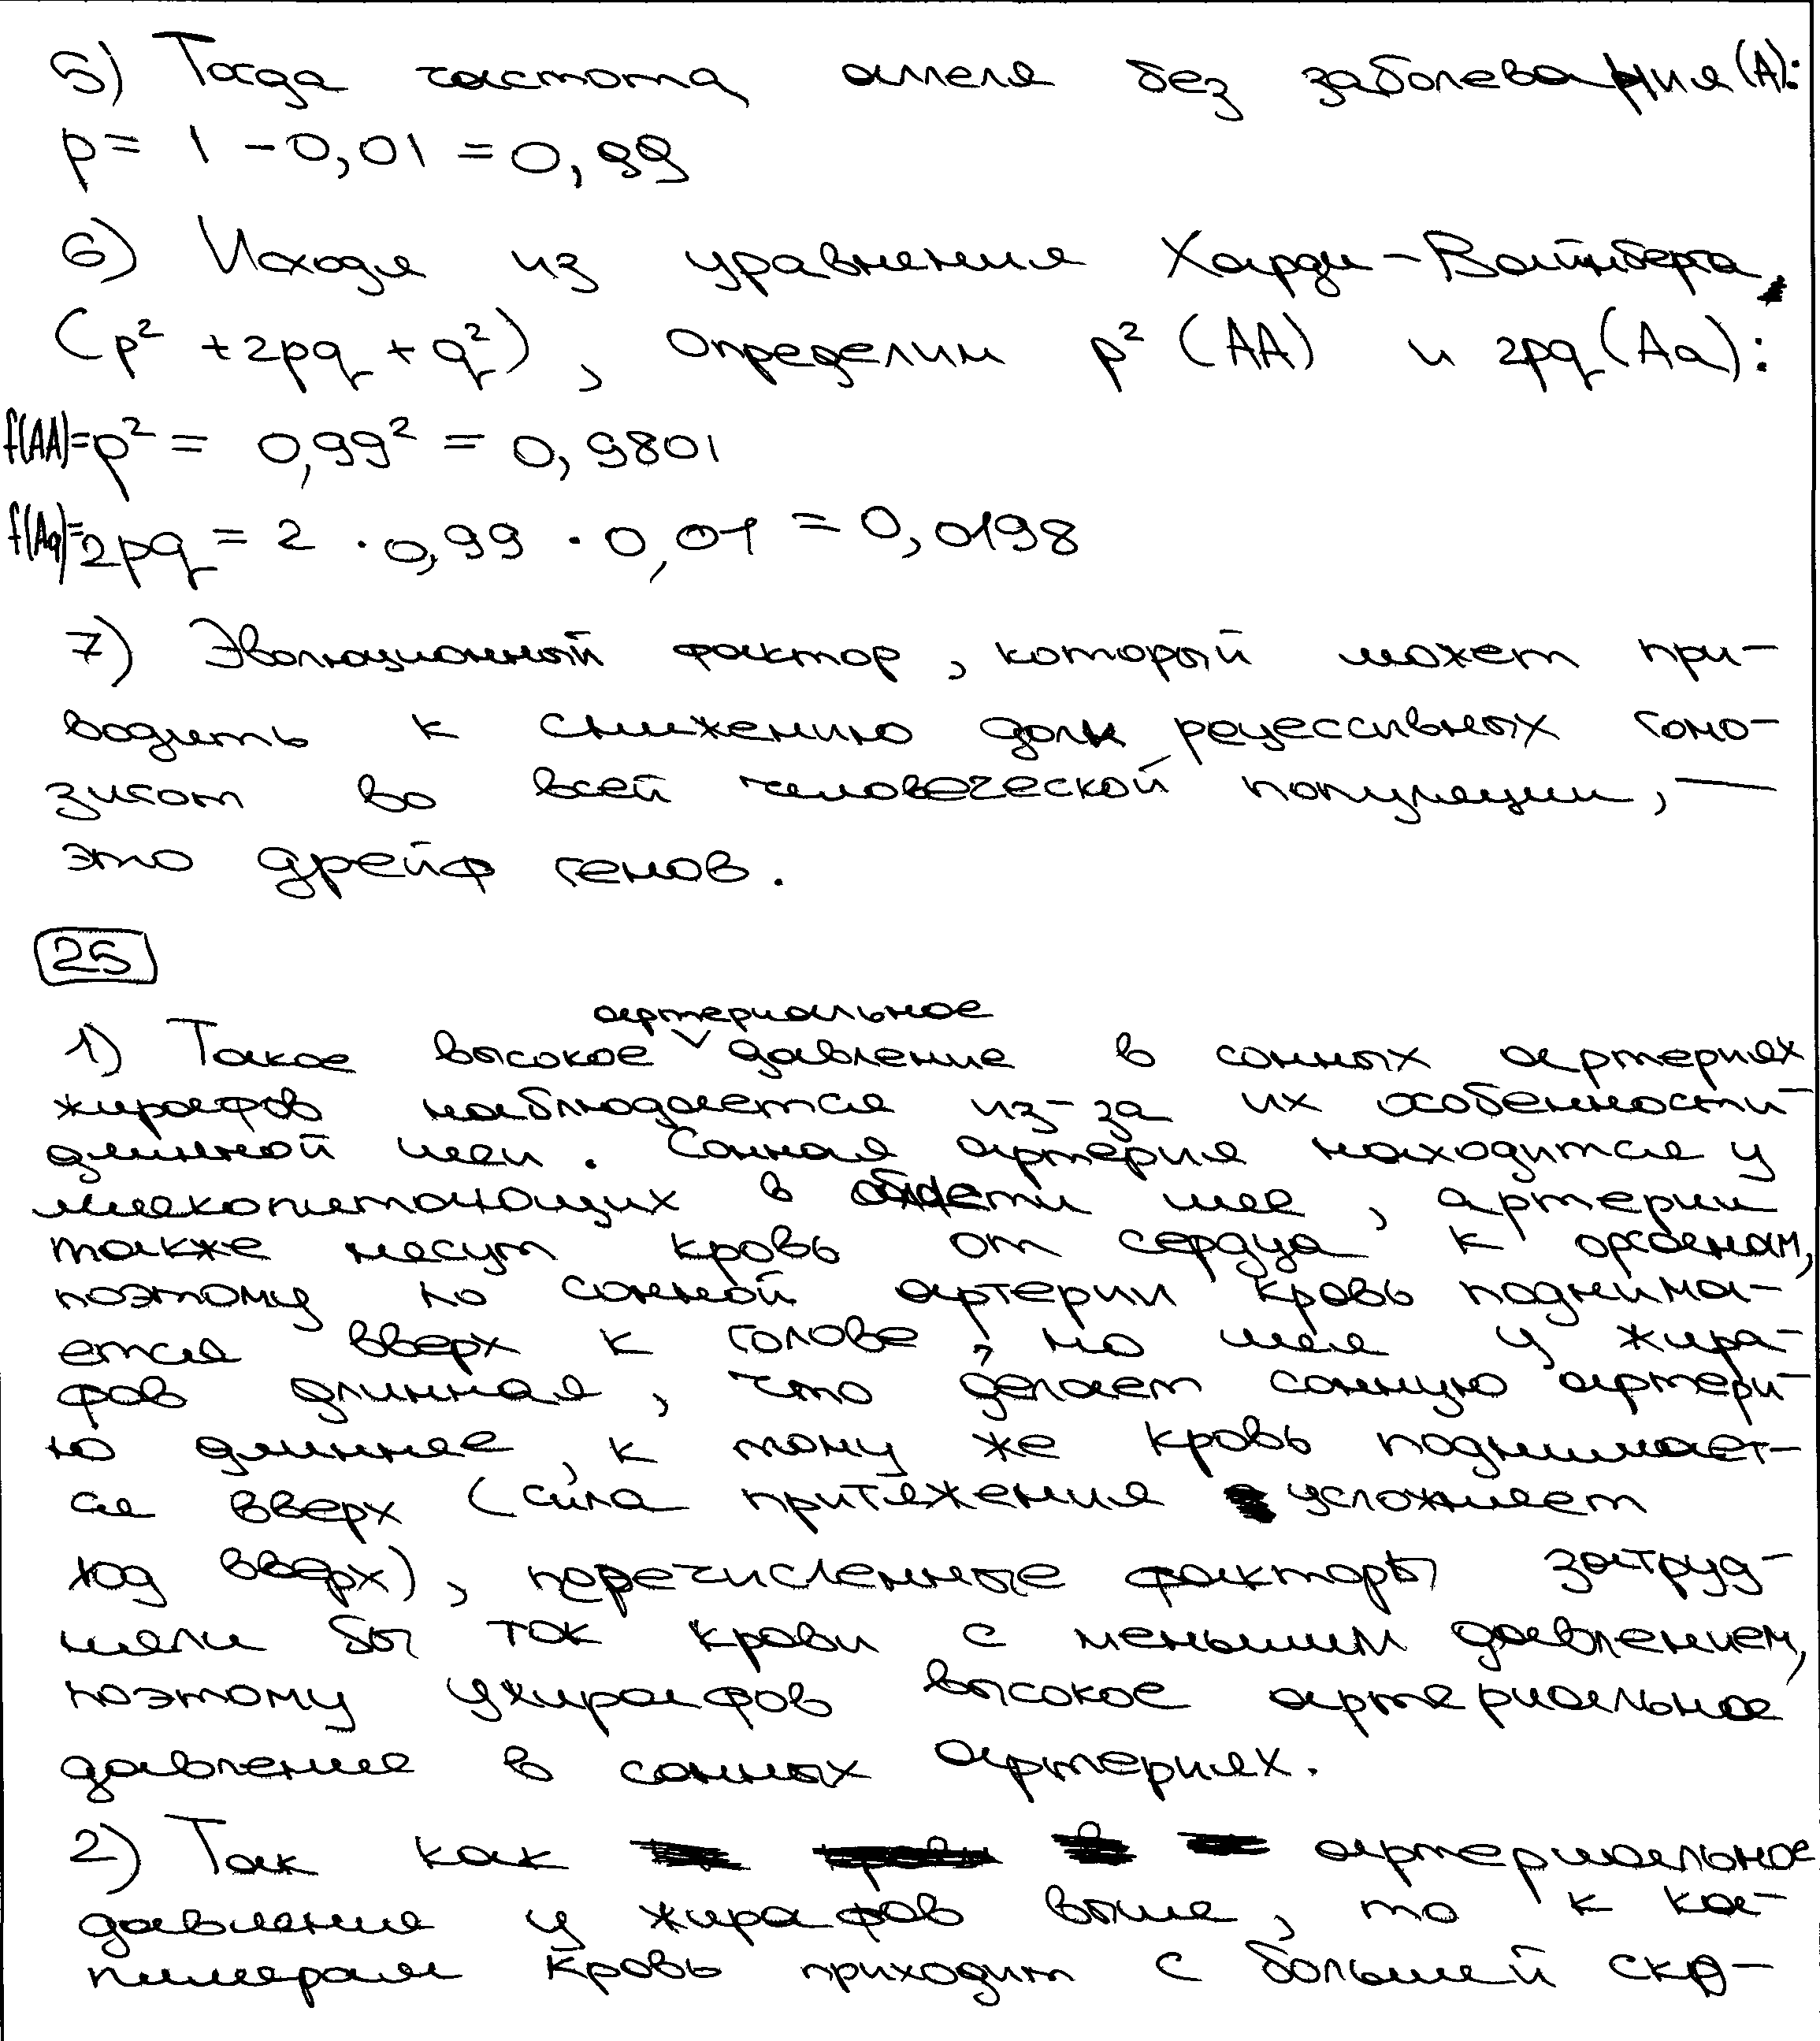 5) Тогда частота аллеля без заболевания (А):
p = 1 - 0,01 = 0,99
6) Исходя из уравнения Харди-Вайнберга,
(p² + 2pq + q²), определим p² (АА) и 2pq (Аа):
f(AA)= p² = 0,99² = 0,9801
f(Aa)= 2pq = 2 · 0,99 · 0,01 = 0,0198
7) Эволюционный фактор, который может при-
водить к снижению доли рецессивных гомо-
зигот во всей человеческой популяции, —
это дрейф генов.
25
артериальное
1) Такое высокое давление в сонных артериях
жирафов наблюдается из-за их особенности -
длинной шеи. Сонная артерия находится у
млекопитающих в шее, артерии
также несут кровь от сердца к органам,
поэтому по сонной артерии кровь поднима-
ется вверх к голове, но шея у жира-
фов длинная, что делает сонную артери-
ю длиннее, к тому же кровь поднимает-
ся вверх (сила притяжения усложняет
ход вверх), перечисленные факторы затруд-
няли бы ток крови с меньшим давлением,
поэтому у жирафов высокое артериальное
давление в сонных артериях.
2) Так как артериальное
давление у жирафов выше, то к ка-
пиллярам кровь приходит с большей ско-